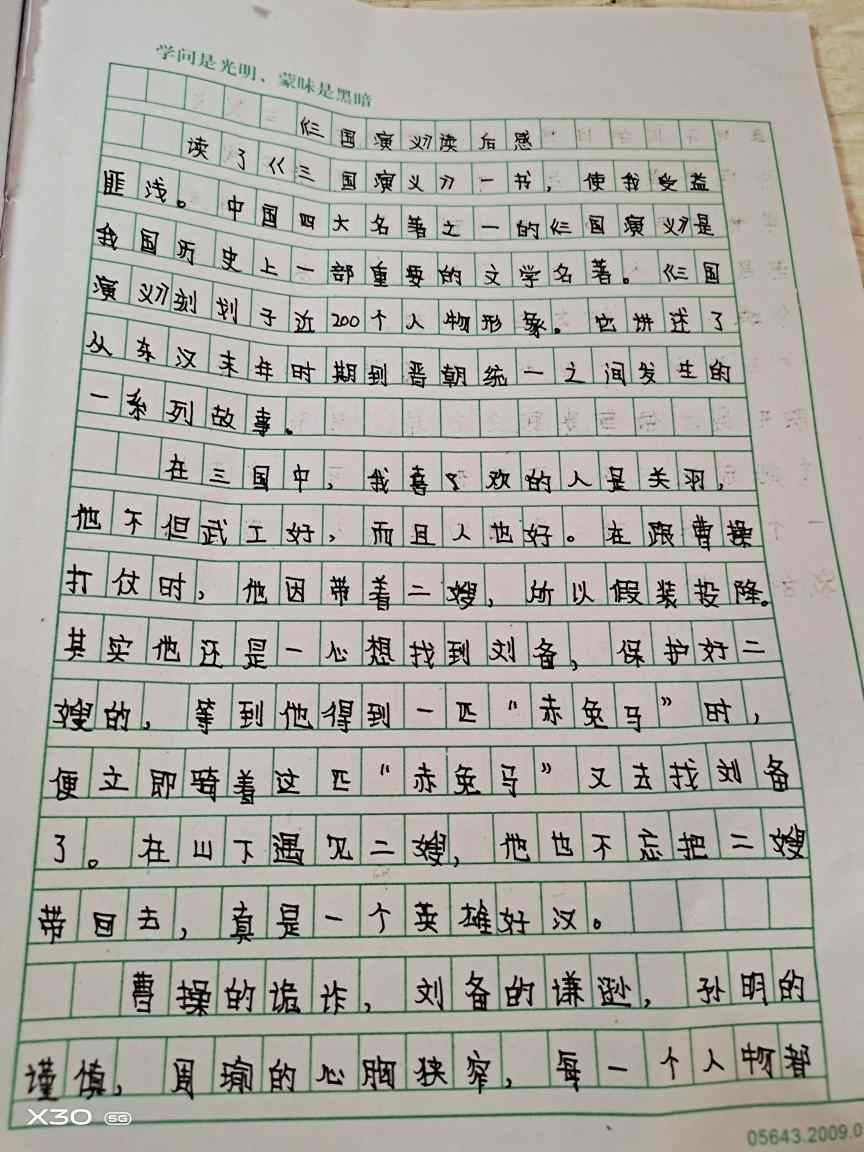 学问是光明、蒙昧是黑暗
《三国演义》读后感
读了《三国演义》一书，使我受益
匪浅。中国四大名著之一的《三国演义》是
我国历史上一部重要的文学名著。《三国
演义》刻划于近200个人物形象。它讲述了
从东汉末年时期到晋朝统一之间发生的
一系列故事。
在三国中，我喜了欢的人是关羽，
他不但武工好，而且人也好。在跟曹操
打仗时，他因带着二嫂，所以假装投降。
其实他还是一心想找到刘备，保护好二
嫂的，等到他得到一匹“赤兔马”时，
便立即骑着这匹“赤兔马”又去找刘备
了。在山下遇见二嫂，他也不忘把二嫂
带回去，真是一个英雄好汉。
曹操的诡诈，刘备的谦逊，孙明的
谨慎，周瑜的心胸狭窄，每一个人物都
X30 5G
05643.2009.0